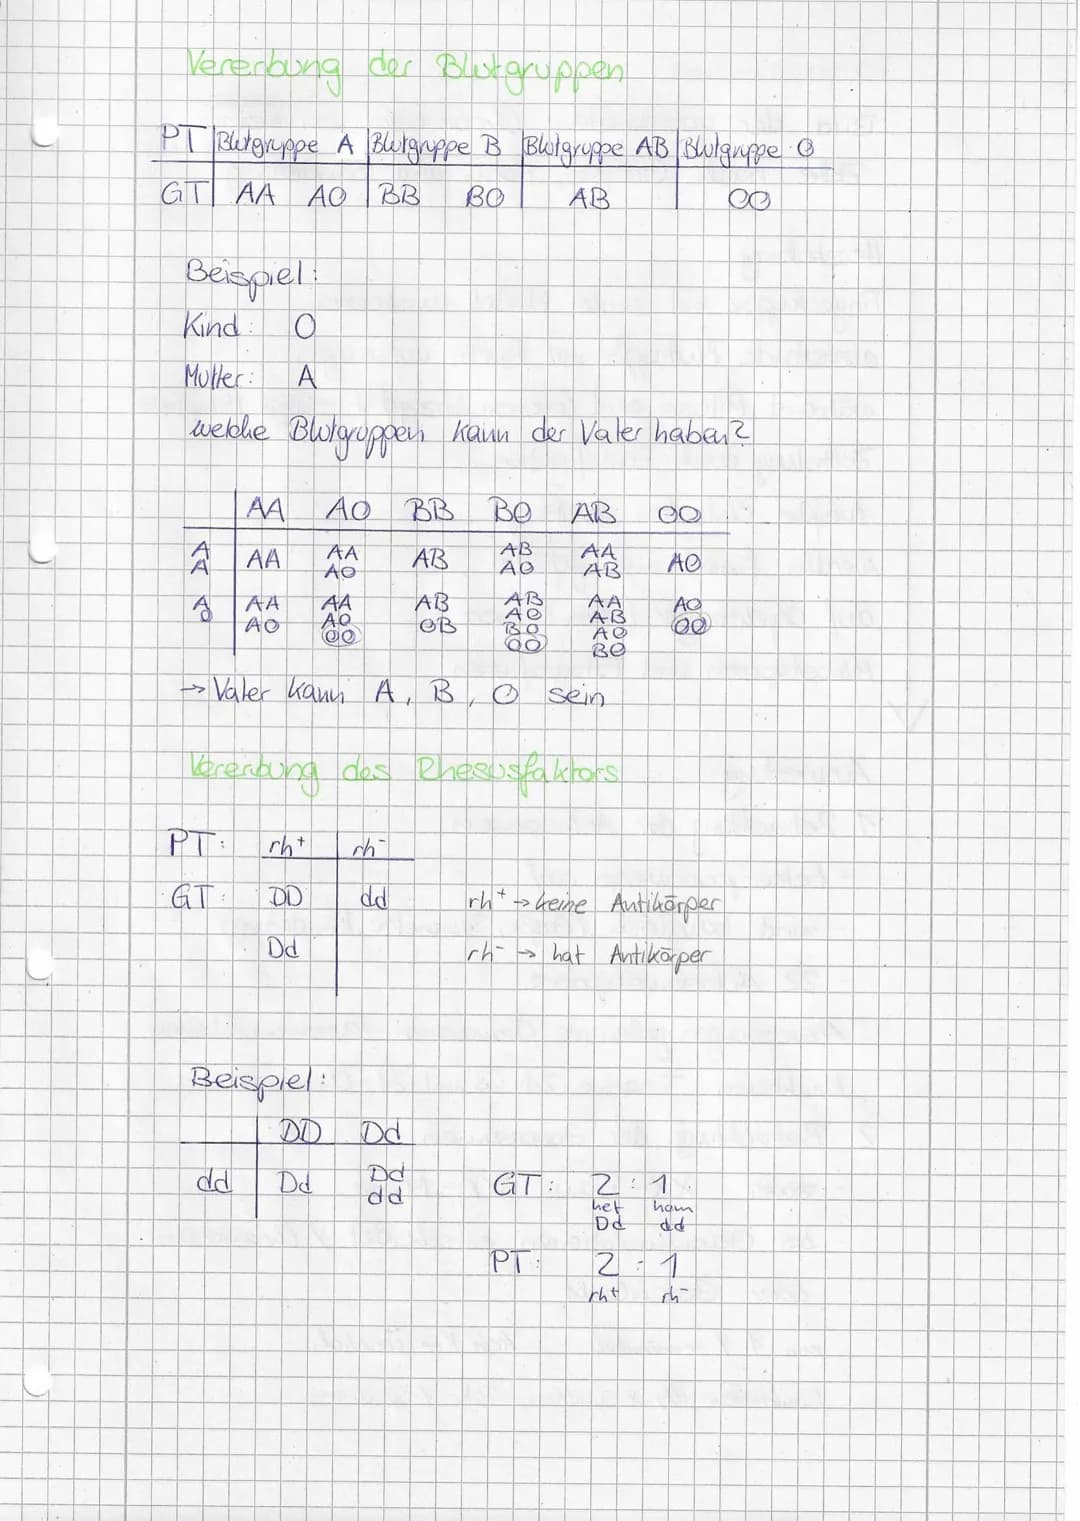 Vererbung der Blutgruppen
PT Blutgruppe A Blutgruppe B Blutgruppe AB Blutgruppe O
GT AA AO BB BO AB OO
Beispiel:
Kind: O
Mutter: A
welche Blutgruppen kann der Vater haben?
AA AO BB BO AB OO
A AA AA AB AB AA AO
A AO AO AB
A AA AA AB AB AA AO
O AO AO OB AO AB OO
OO BO AO
OO BO
→ Vater kann A, B, O sein
Vererbung des Rhesusfaktors
PT: rh+ rh-
GT: DD dd rh+ → keine Antikörper
Dd rh- → hat Antikörper
Beispiel:
DD Dd
dd Dd Dd GT: 2 : 1
dd het hom
Dd dd
PT: 2 : 1
rh+ rh-